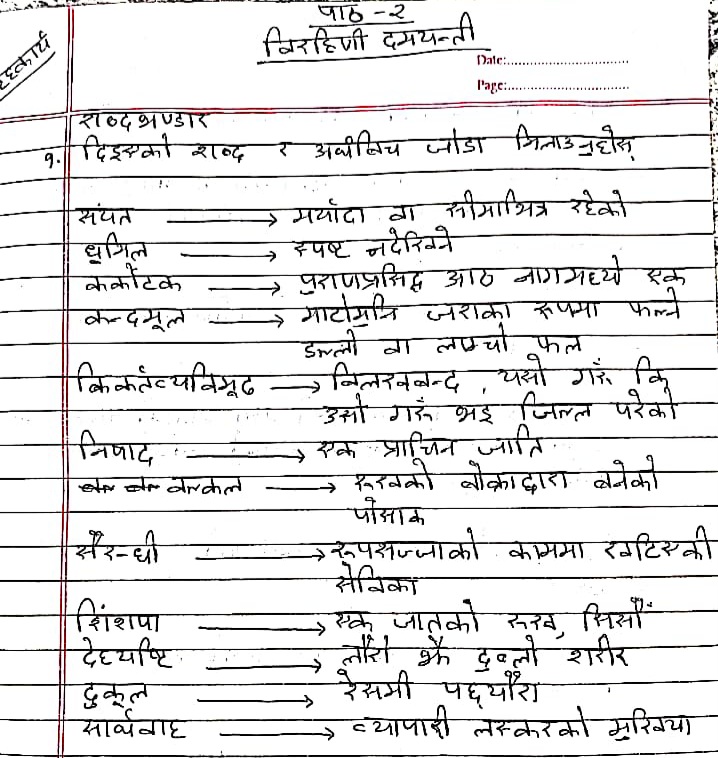 पाठ -२
विरहिणी दमयन्ती
गृहकार्य
Date:
Page:
शब्दभण्डार
१. दिइएको शब्द र अर्थबिच जोडा मिलाउनुहोस्
संयत → मर्यादा वा सीमाभित्र रहेको
धुमिल → स्पष्ट नदेखिने
कर्कोटक → पुराणप्रसिद्ध आठ नागमध्ये एक
कन्दमूल → माटोमुनि जराका रूपमा फल्ने
डल्लो वा लाम्चो फल
किंकर्तव्यविमूढ → विलखबन्द, यसो गरूँ कि
उसो गरूँ भइ जिल्ल परेको
निषाद → एक प्राचिन जाति
वल्कल → रूखको बोक्राद्वारा बनेको
पोसाक
सैरन्ध्री → रूपसज्जाको काममा खटिएकी
सेविका
शिंशपा → एक जातको रूख, सिसौँ
देहयष्टि → लौरो झैँ दुब्लो शरीर
दुकूल → रेसमी पछ्यौरा
सार्थवाह → व्यापारी लस्करको मुखिया